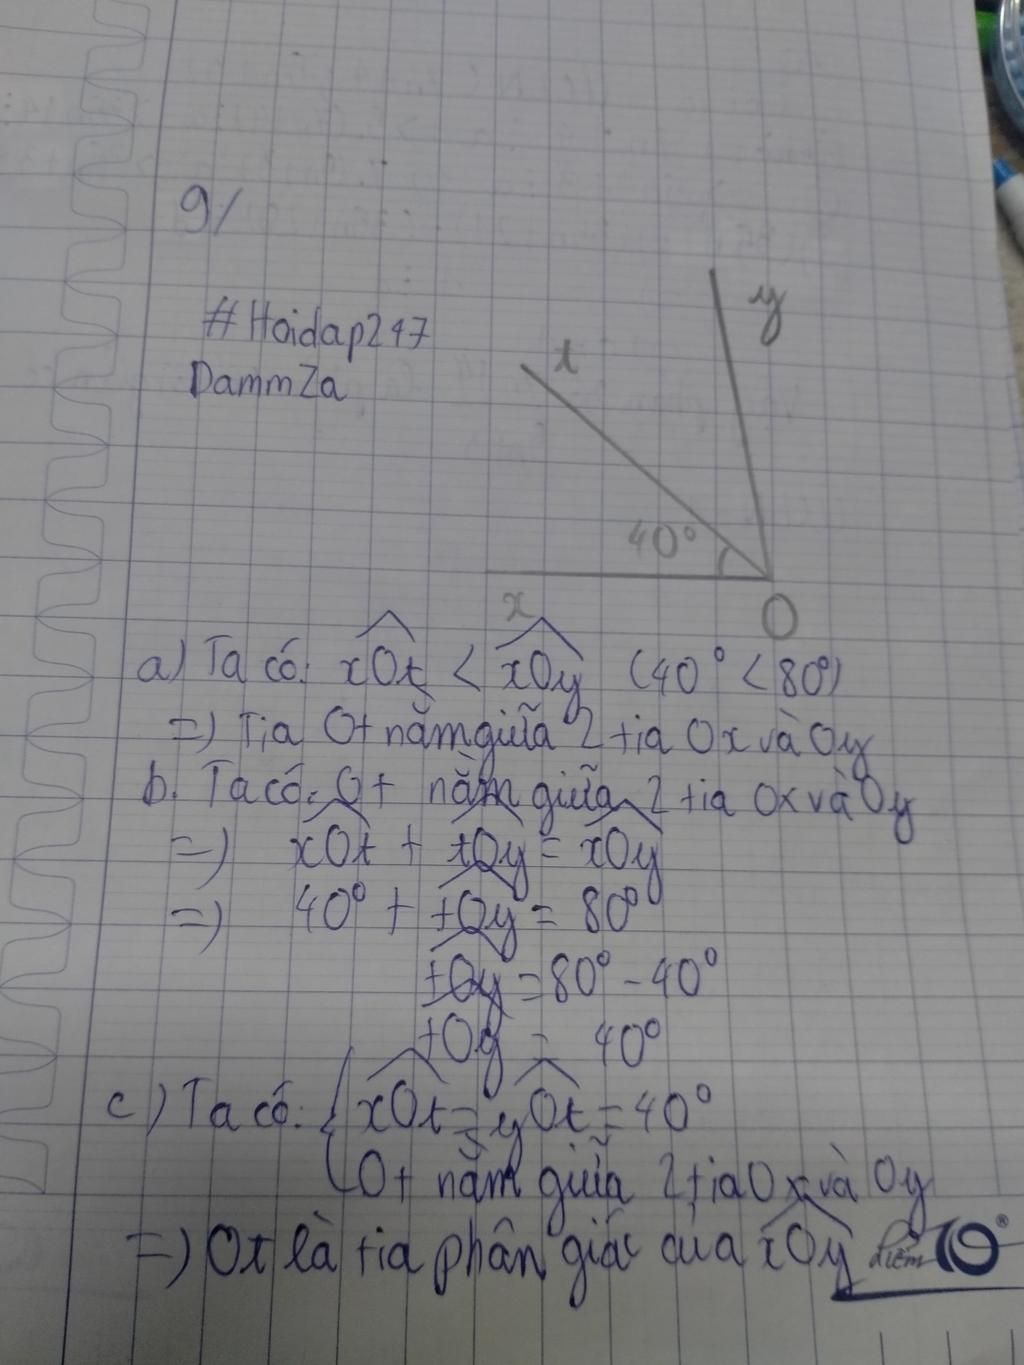 9/
#Hoidap247
DammZa
y
t
40°
x
O
a) Ta có: xOt < xOy (40° < 80°)
=) Tia Ot nằm giữa 2 tia Ox và Oy
b. Ta có: Ot nằm giữa 2 tia Ox và Oy
=) xOt + tOy = xOy
=) 40° + tOy = 80°
tOy = 80° - 40°
tOy = 40°
c) Ta có: { xOt = yOt = 40°
Ot nằm giữa 2 tia Ox và Oy
=) Ot là tia phân giác của xOy
điểm 10®